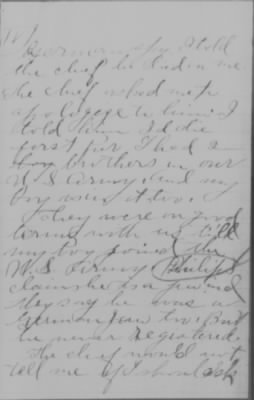 German spy I told
the chief he lied on me
the chief asked me to
apologize to him I
told him I'd die
first for I had 2
brothers in our
U.S. Army and my
boy was in it too.
They were on good
terms with us till
my boy joined the
U.S. Army Philips
claims he is a
they say he was a
German too But
he never registered.
The chief would not
tell me if I should ask